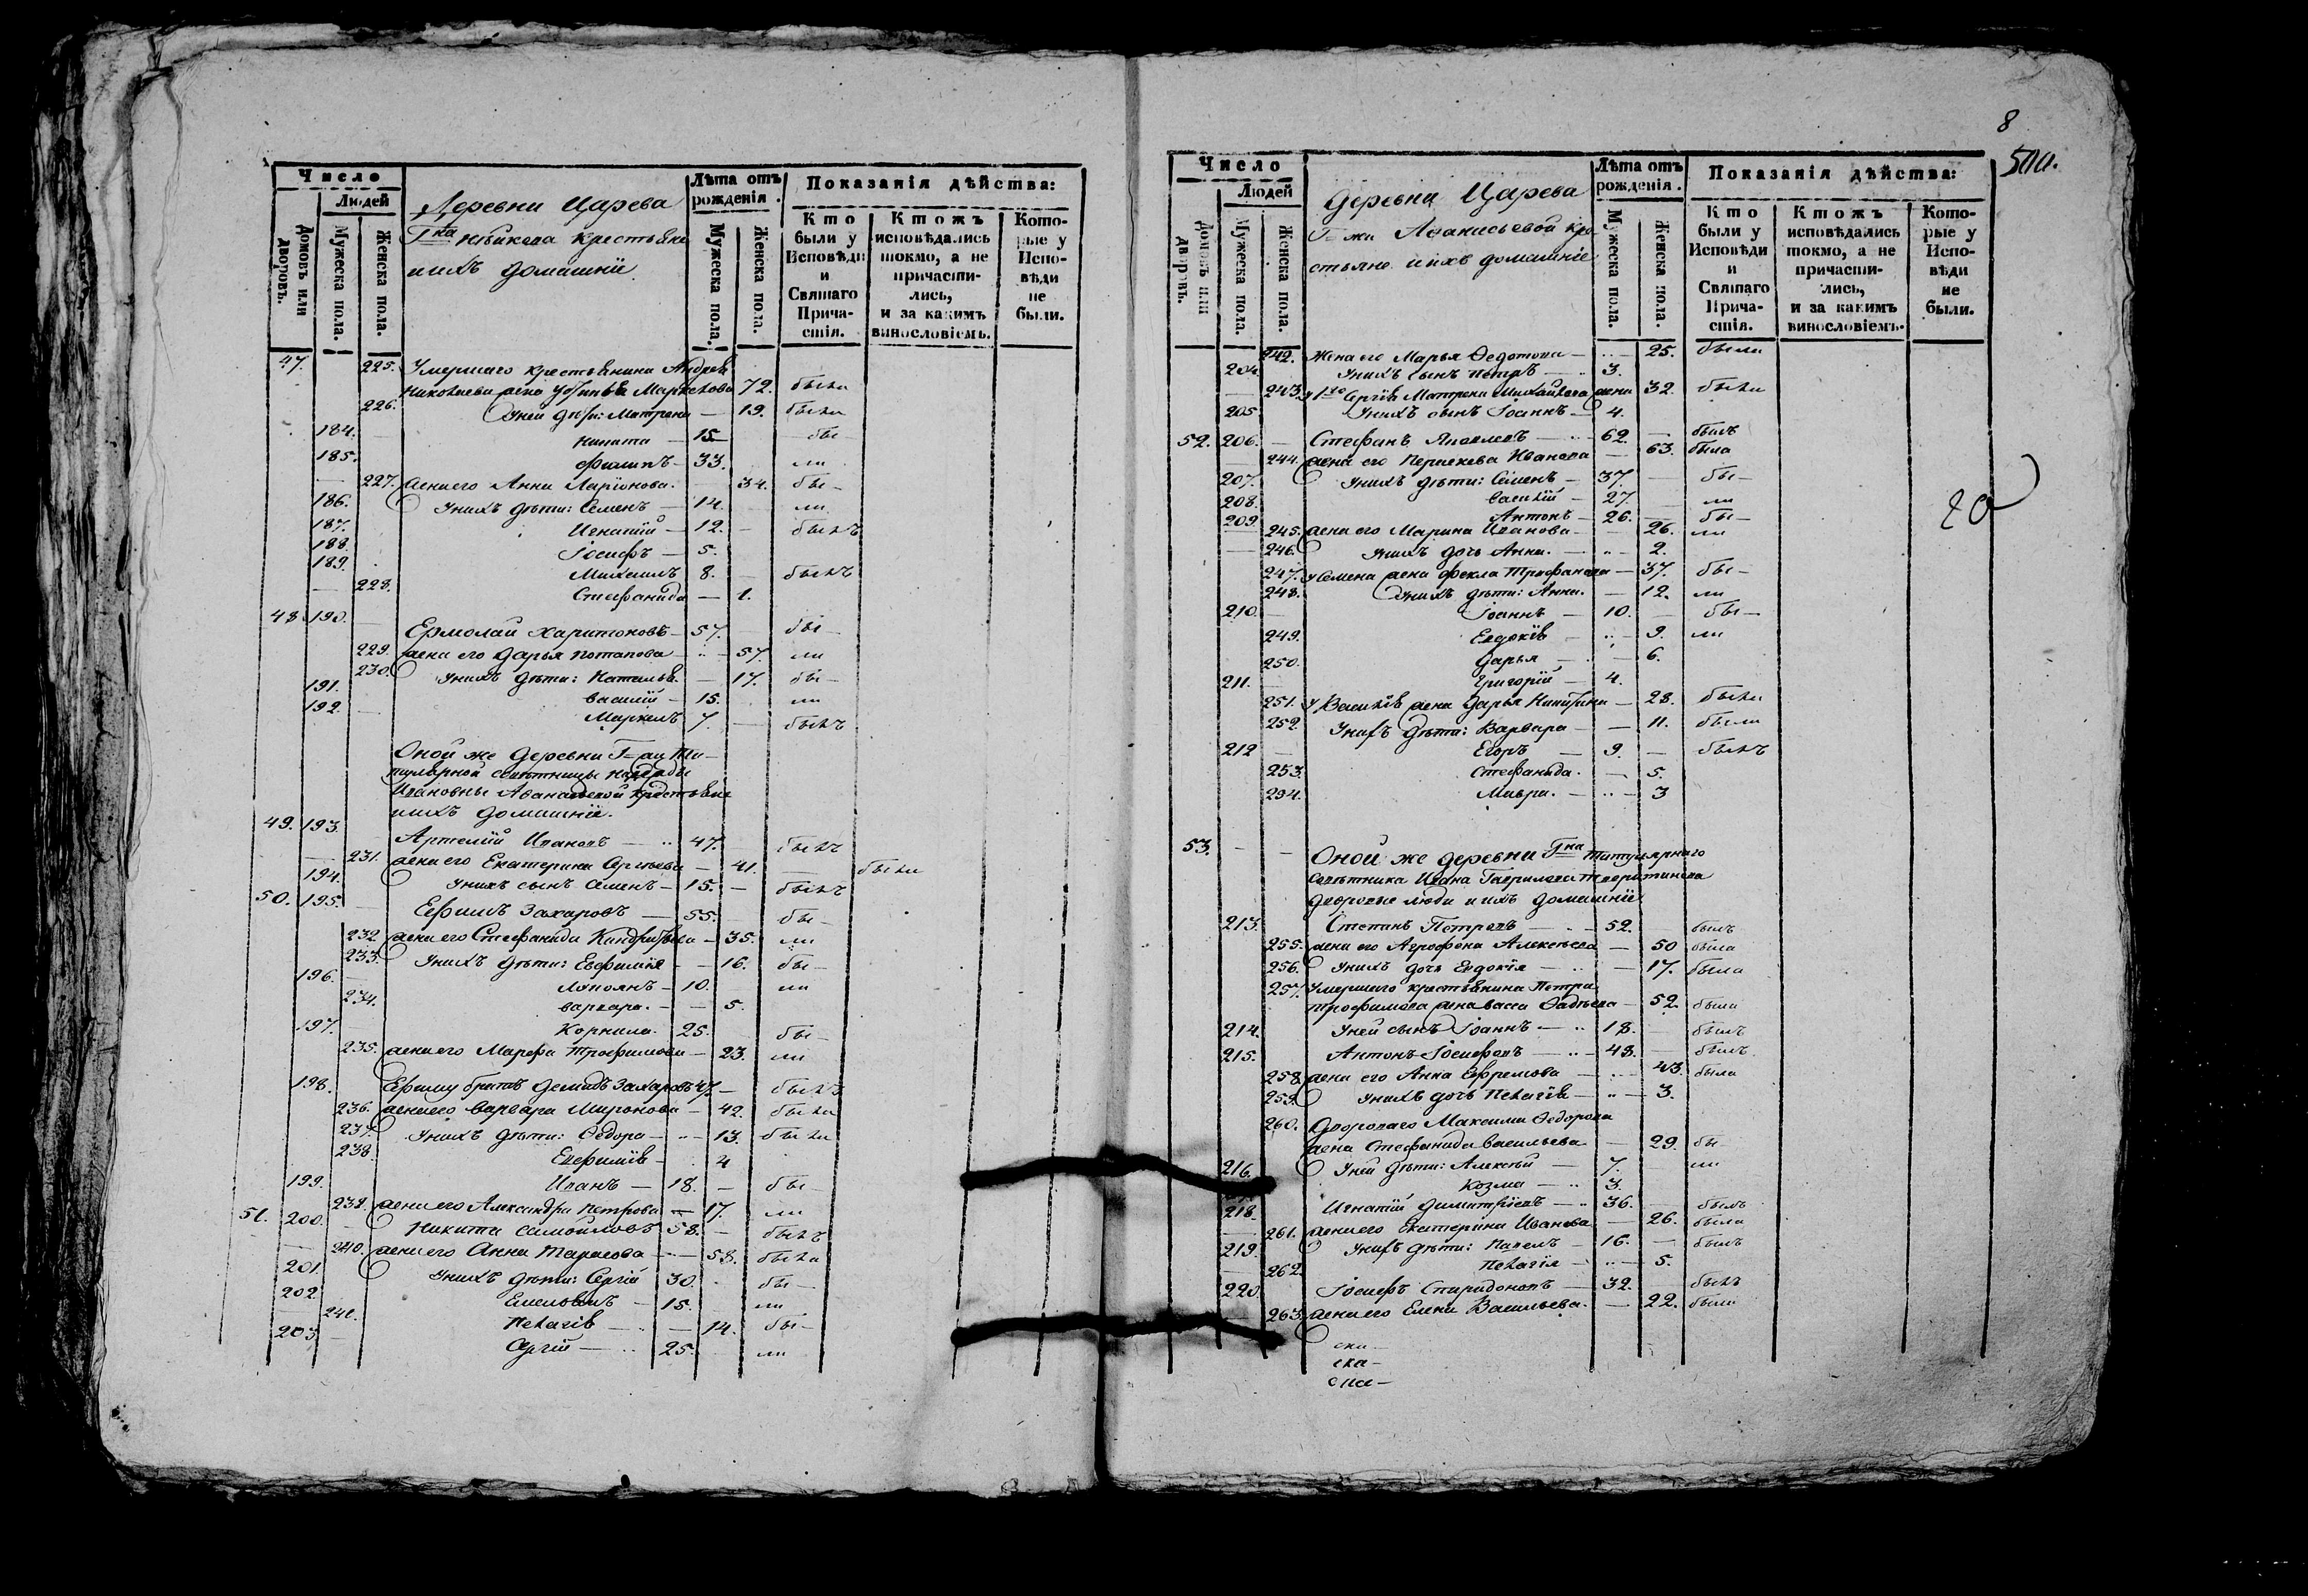 Число
Людей
Домовъ или дворовъ.
Мужеска пола.
Женска пола.
Деревни Царева
Г=на крестьяне
и ихъ домашніе
Лѣта отъ рожденія.
Мужеска пола.
Женска пола.
Показанія дѣйства:
Кто были у Исповѣди и Святаго Причастія.
Ктожъ исповѣдались токмо, а не причастились, и за какимъ винословіемъ.
Которые у Исповѣди не были.
47. 225. Умершаго крестьянина Андрея
жена Маркелова 72. была
226. У ней дѣти: Матрена — 19. была
184. Никита — 15. бы-
185. Филипъ — 33. ли
227. жена его Анна Ларіонова. 34. бы-
186. У нихъ дѣти: Семенъ — 14. ли
187. Игнатій — 12. былъ
188. Іосифъ — 5.
189. Михаилъ 8. былъ
228. Стефанида — 1.
48. 190. Ермолай Харитоновъ — 57. бы-
229. жена его Дарья Потапова — 57. ли
230. У нихъ дѣти: Наталья — 17. бы-
191. Василій — 15. ли
192. Маркелъ 7. былъ
Оной же деревни Г=жи Ти-
тулярной совѣтницы
Ивановны Аванасьевой крестьяне
и ихъ домашніе.
49. 193. Артемій Ивановъ — 47. былъ
231. жена его Екатерина Сергѣева — 41. была
194. У нихъ сынъ Семенъ — 15. былъ
50. 195. Ефимъ Захаровъ — 55. бы-
232. жена его Стефанида Кондратьева — 35. ли
233. У нихъ дѣти: Евфимія — 16. бы-
196. — 10. ли
234. Варвара. — 5.
197. Корнила. 25. бы-
235. жена его Марфа Трофимова — 23. ли
198. Ефиму братъ Демидъ Захаровъ 47. былъ
236. жена его Варвара Миронова — 42. была
237. У нихъ дѣти: Ѳедора — 13. была
238. Евфимія — 4
199. Иванъ — 18. бы-
239. жена его Александра Петрова — 17. ли
51. 200. Никита Самойловъ 58. былъ
240. жена его Анна Тарасова — 58. была
201. У нихъ дѣти: Сергій 30. бы-
202. Емельянъ — 15. ли
241. Пелагія — 14. бы-
203. Сергій — 25. ли
8
500.
Число
Людей
Домовъ или дворовъ.
Мужеска пола.
Женска пола.
Деревни Царева
Г=жи Аванасьевой кре-
стьяне и ихъ домашніе
Лѣта отъ рожденія.
Мужеска пола.
Женска пола.
Показанія дѣйства:
Кто были у Исповѣди и Святаго Причастія.
Ктожъ исповѣдались токмо, а не причастились, и за какимъ винословіемъ.
Которые у Исповѣди не были.
242. жена его Марья Ѳедотова — 25. были
204. У нихъ сынъ Петръ — 3.
243. у 1го Сергія Матрена Михайлова жена 32. была
205. У нихъ сынъ Іоаннъ — 4.
52. 206. Стефанъ Яковлевъ — 62. былъ
244. жена его Параскева Иванова — 63. была
207. У нихъ дѣти: Семенъ — 37. бы-
208. Василій — 27. ли
209. Антонъ — 26. бы-
245. жена его Марина Иванова — 26. ли
246. У нихъ дочь Анна. — 2.
247. у Семена жена Фекла Трофимова — 37. бы-
248. У нихъ дѣти: Анна. — 12. ли
210. Іоаннъ — 10. бы-
249. Евдокія — 9. ли
250. Дарья — 6.
211. Григорій — 4.
251. у Василія жена Дарья Никитина — 28. была
252. У нихъ дѣти: Варвара — 11. были
212 Егоръ — 9. былъ
253. Стефанида. — 5.
294. Мавра. — 3
20
53. Оной же деревни Г=на Титулярнаго
совѣтника Ивана Гаврилова
дворовые люди и ихъ домашніе
213. Степанъ Петровъ — 52. былъ
255. жена его Агрофена Алексѣева — 50 была
256. У нихъ дочь Евдокія — 17. была
257. Умершаго крестьянина Петра
Трофимова жена Васса Фадѣева — 52. была
214. У ней сынъ Іоаннъ — 18. былъ
215. Антонъ Іосифовъ — 48. былъ
258. жена его Анна Ефремова — 43. была
259. У нихъ дочь Пелагія — 3.
260. Двороваго Максима Ѳедорова
жена Стефанида Васильева — 29. бы-
216. У ней дѣти: Алексѣй — 7. ли
Козма — 3.
218. Игнатій Димитріевъ — 36. былъ
261. жена его Екатерина Иванова — 26. была
219. У нихъ дѣти: Павелъ — 16. былъ
262. Пелагія — 5.
220. Іосифъ Спиридоновъ — 32. былъ
263. жена его Елена Васильева. — 22. были